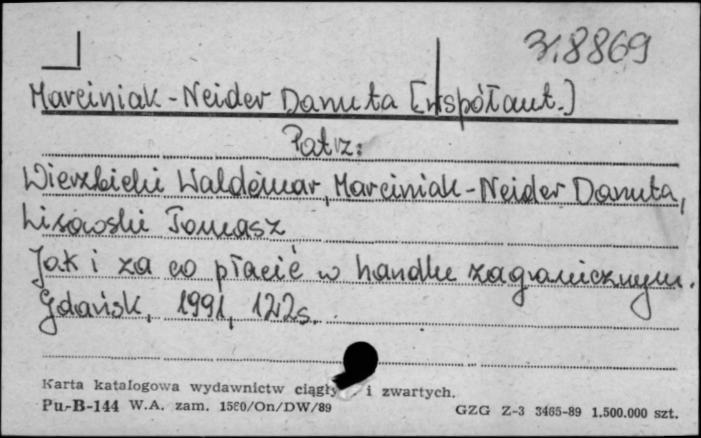 31,8869
Marciniak-Neider Danuta [współaut.]
Patrz:
Wierzbicki Waldemar, Marciniak-Neider Danuta,
Lisowski Tomasz
Jak i za co płacić w handlu zagranicznym.
Gdańsk, 1991, 122s.
Karta katalogowa wydawnictw i zwartych.
Pu-B-144 W.A. zam. 1560/On/DW/89
GZG Z-3 3465-89 1.500.000 szt.